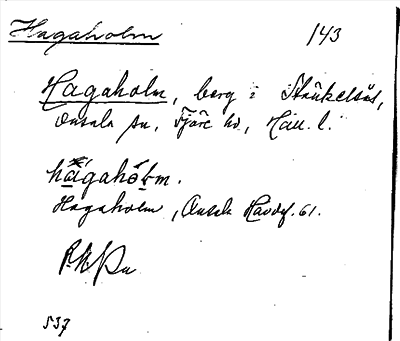 Hagaholm 143
Hagaholm, berg i Stânkelsås,
Onsala sn, Fjäre hd, Hall. l.
hagahòlm.
Hagaholm, Onsala Havdef. 61.
537